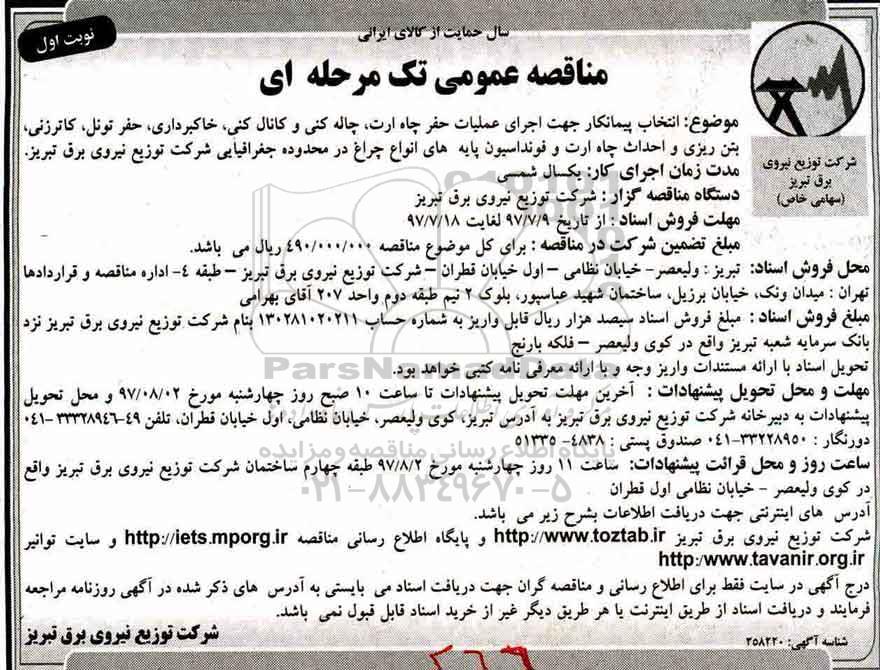 نوبت اول
سال حمایت از کالای ایرانی
مناقصه عمومی تک مرحله ای
شرکت توزیع نیروی
برق تبریز
(سهامی خاص)
موضوع: انتخاب پیمانکار جهت اجرای عملیات حفر چاه ارت، چاله کنی و کانال کنی، خاکبرداری، حفر تونل، کاترزنی،
بتن ریزی و احداث چاه ارت و فونداسیون پایه های انواع چراغ در محدوده جغرافیایی شرکت توزیع نیروی برق تبریز.
مدت زمان اجرای کار: یکسال شمسی
دستگاه مناقصه گزار : شرکت توزیع نیروی برق تبریز
مهلت فروش اسناد : از تاریخ ۹۷/۷/۹ لغایت ۹۷/۷/۱۸
مبلغ تضمین شرکت در مناقصه : برای کل موضوع مناقصه ۴۹۰/۰۰۰/۰۰۰ ریال می باشد.
محل فروش اسناد: تبریز : ولیعصر- خیابان نظامی – اول خیابان قطران – شرکت توزیع نیروی برق تبریز – طبقه ۴- اداره مناقصه و قراردادها
تهران : میدان ونک، خیابان برزیل، ساختمان شهید عباسپور، بلوک ۲ نیم طبقه دوم واحد ۲۰۷ آقای بهرامی
مبلغ فروش اسناد : مبلغ فروش اسناد سیصد هزار ریال قابل واریز به شماره حساب ۱۳۰۲۸۱۰۲۰۲۱۱ بنام شرکت توزیع نیروی برق تبریز نزد
بانک سرمایه شعبه تبریز واقع در کوی ولیعصر – فلکه بارنج
تحویل اسناد با ارائه مستندات واریز وجه و با ارائه معرفی نامه کتبی خواهد بود.
مهلت و محل تحویل پیشنهادات : آخرین مهلت تحویل پیشنهادات تا ساعت ۱۰ صبح روز چهارشنبه مورخ ۹۷/۰۸/۰۲ و محل تحویل
پیشنهادات به دبیرخانه شرکت توزیع نیروی برق تبریز به آدرس تبریز، کوی ولیعصر، خیابان نظامی، اول خیابان قطران، تلفن ۴۹-۳۳۳۲۸۹۴۶-۰۴۱
دورنگار : ۳۳۲۲۸۹۵۰-۰۴۱ صندوق پستی : ۴۸۳۸- ۵۱۳۳۵
ساعت روز و محل قرائت پیشنهادات: ساعت ۱۱ روز چهارشنبه مورخ ۹۷/۸/۲ طبقه چهارم ساختمان شرکت توزیع نیروی برق تبریز واقع
در کوی ولیعصر - خیابان نظامی اول قطران
آدرس های اینترنتی جهت دریافت اطلاعات بشرح زیر می باشد.
شرکت توزیع نیروی برق تبریز http://www.toztab.ir و پایگاه اطلاع رسانی مناقصه http://iets.mporg.ir و سایت توانیر
http:/www.tavanir.org.ir
درج آگهی در سایت فقط برای اطلاع رسانی و مناقصه گران جهت دریافت اسناد می بایستی به آدرس های ذکر شده در آگهی روزنامه مراجعه
فرمایند و دریافت اسناد از طریق اینترنت یا هر طریق دیگر غیر از خرید اسناد قابل قبول نمی باشد.
شناسه آگهی: ۲۵۸۲۲۰
شرکت توزیع نیروی برق تبریز
ParsNamadData
پایگاه اطلاع رسانی مناقصه و مزایده
۰۲۱-۸۸۳۴۹۶۷۰-۵